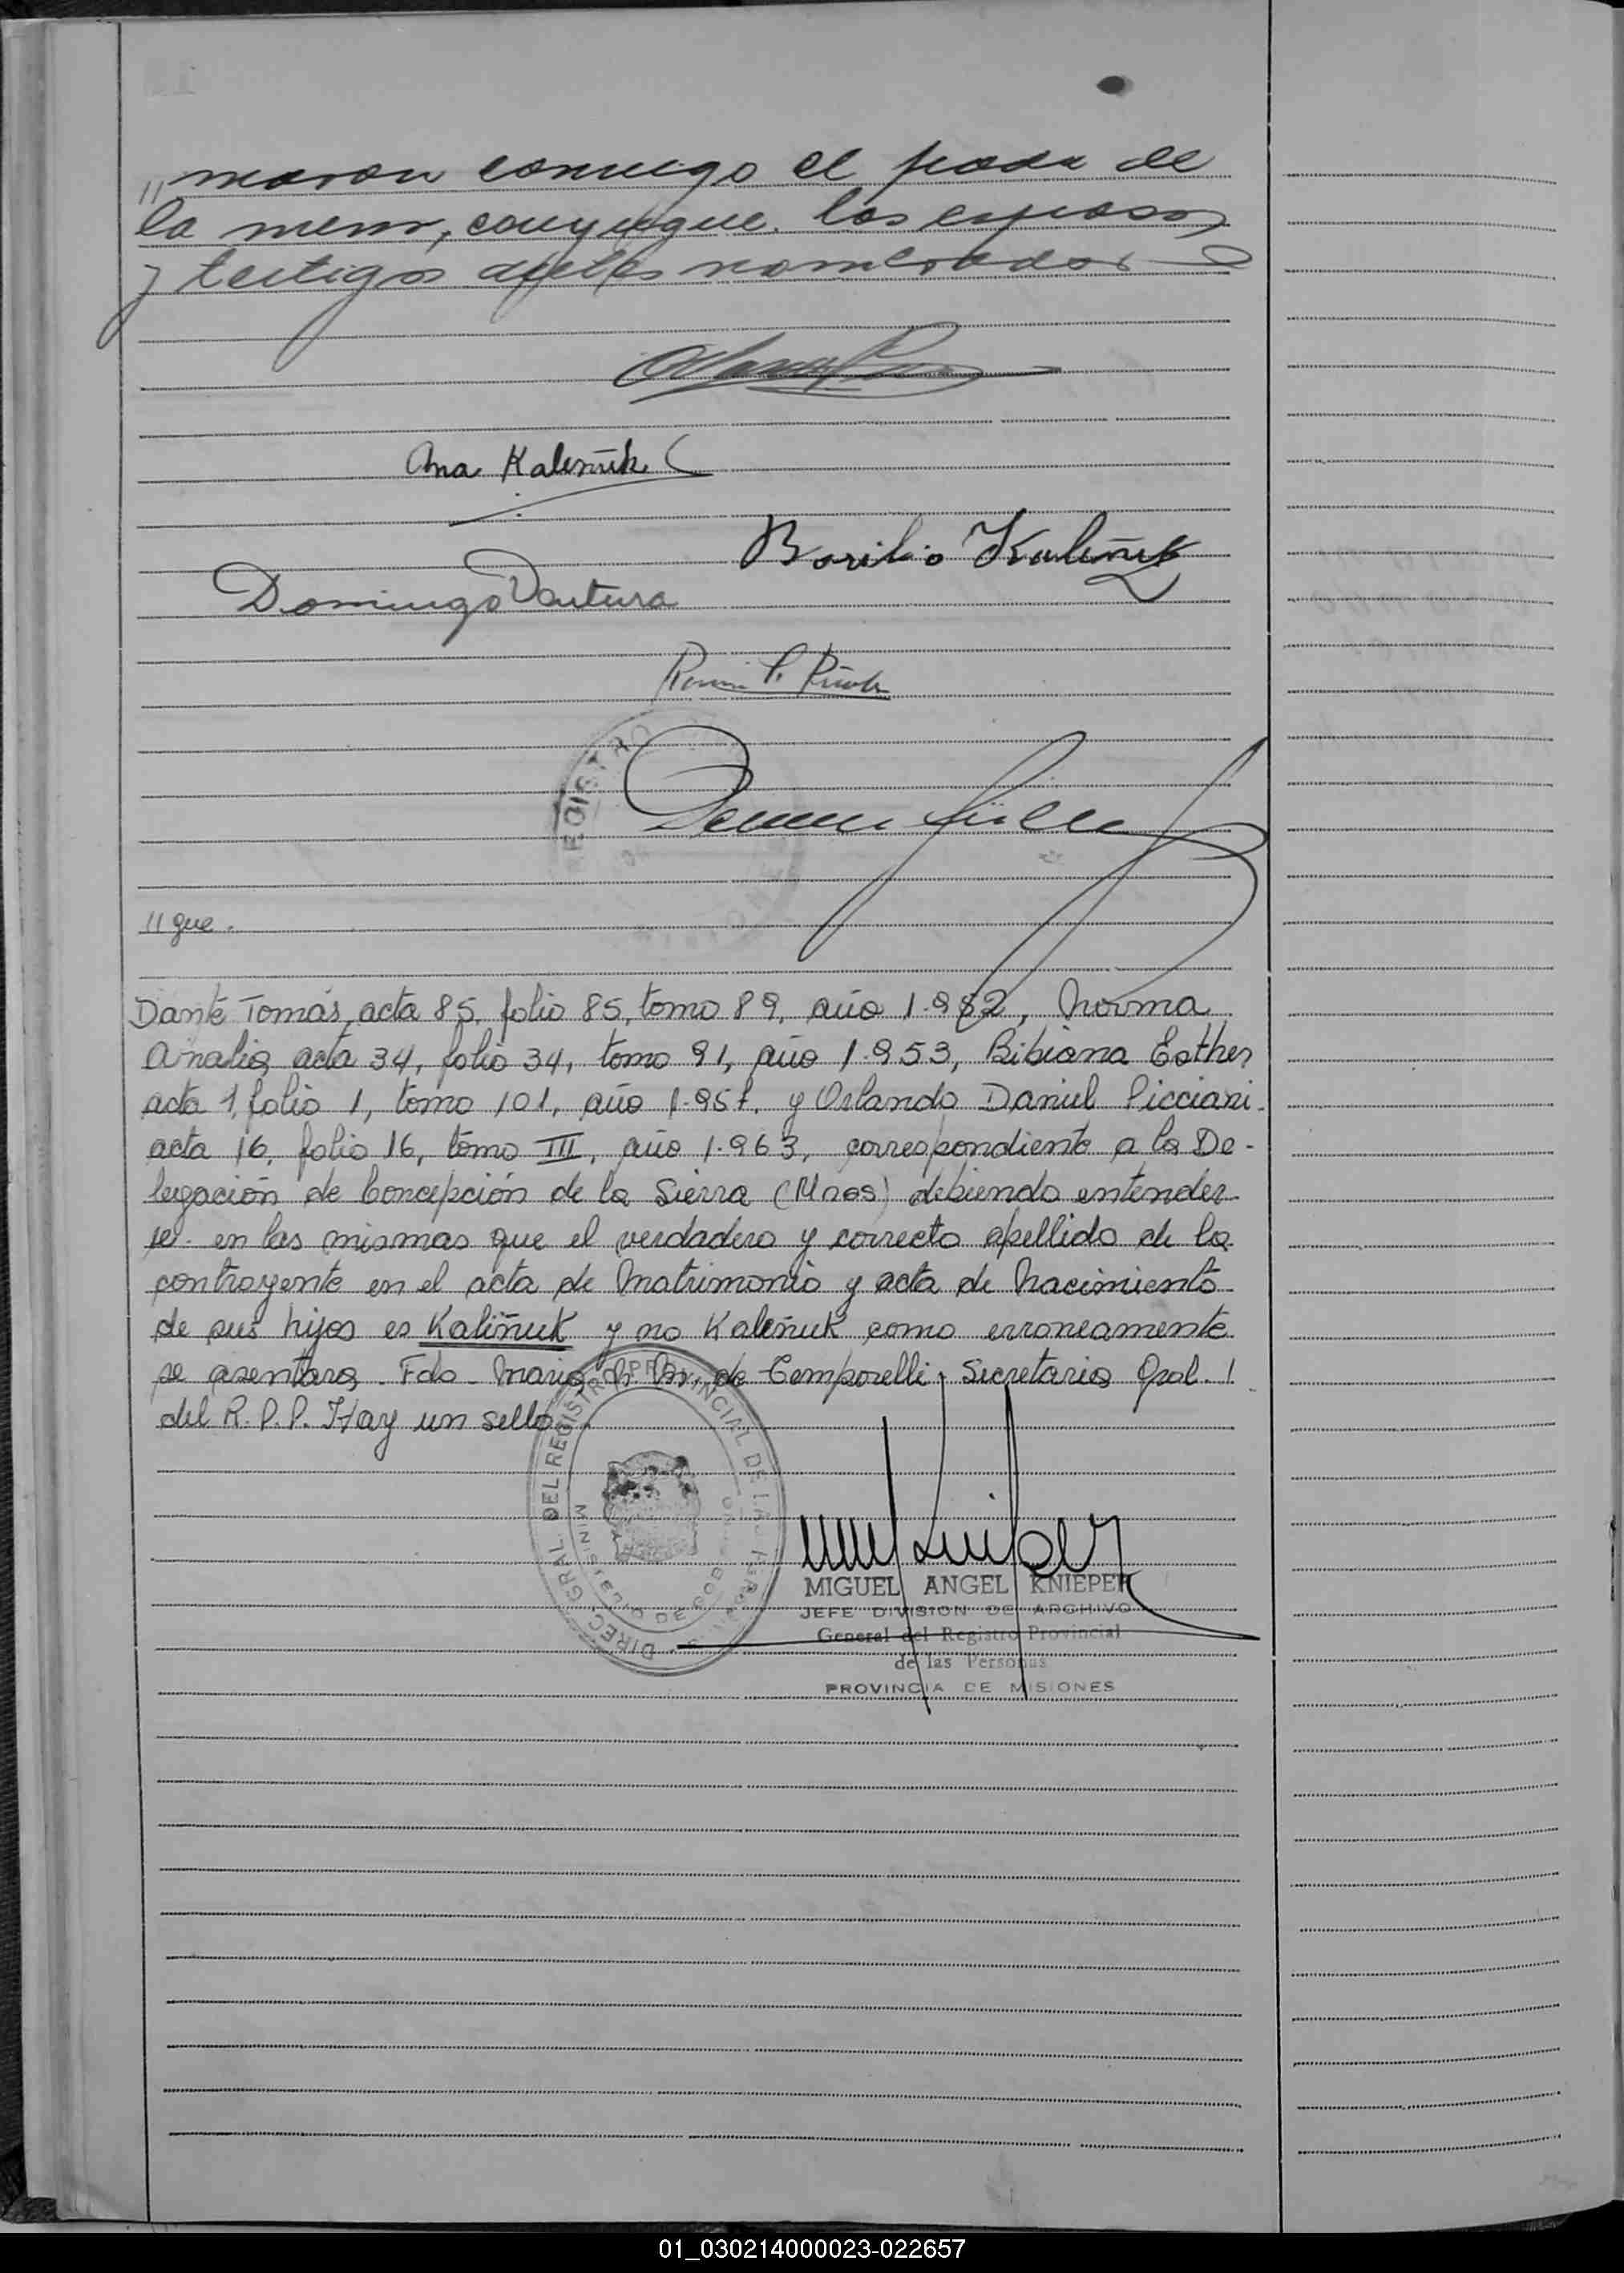 "maron conmigo el padre de
la menor, conyugue. los esposos
y testigos antes nombrados
Ana Kaleñuk
Basilio Kaliñuk
Domingo Ventura
REGISTRO
// que.
Dante Tomás, acta 85, folio 85, tomo 89, año 1.952, Norma
Analia, acta 34, folio 34, tomo 91, año 1.953, Bibiana Esther
acta 1, folio 1, tomo 101, año 1.957, y Orlando Daniel Picciani.
acta 16, folio 16, tomo III, año 1.963, correspondiente a la De-
legación de Concepción de la Sierra (Mnes) debiendo entender-
se en las mismas que el verdadero y correcto apellido de la
contrayente en el acta de Matrimonio y acta de Nacimiento
de sus hijos es Kaliñuk y no Kaleñuk como erroneamente
se asentara. Fdo. Maria de Camporelli. Secretaria Gral.
del R. P. P. Hay un sello.
DIREC. GRAL. DEL REGISTRO PROVINCIAL DE LAS PERSONAS
MIGUEL ANGEL KNIEPER
JEFE DIVISION DE ARCHIVO
General del Registro Provincial
de las Personas
PROVINCIA DE MISIONES
01_030214000023-022657